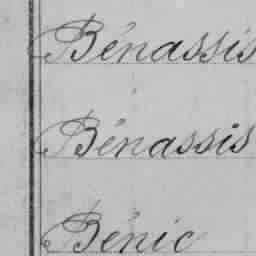 Bénassis
Bénassis
Bénic